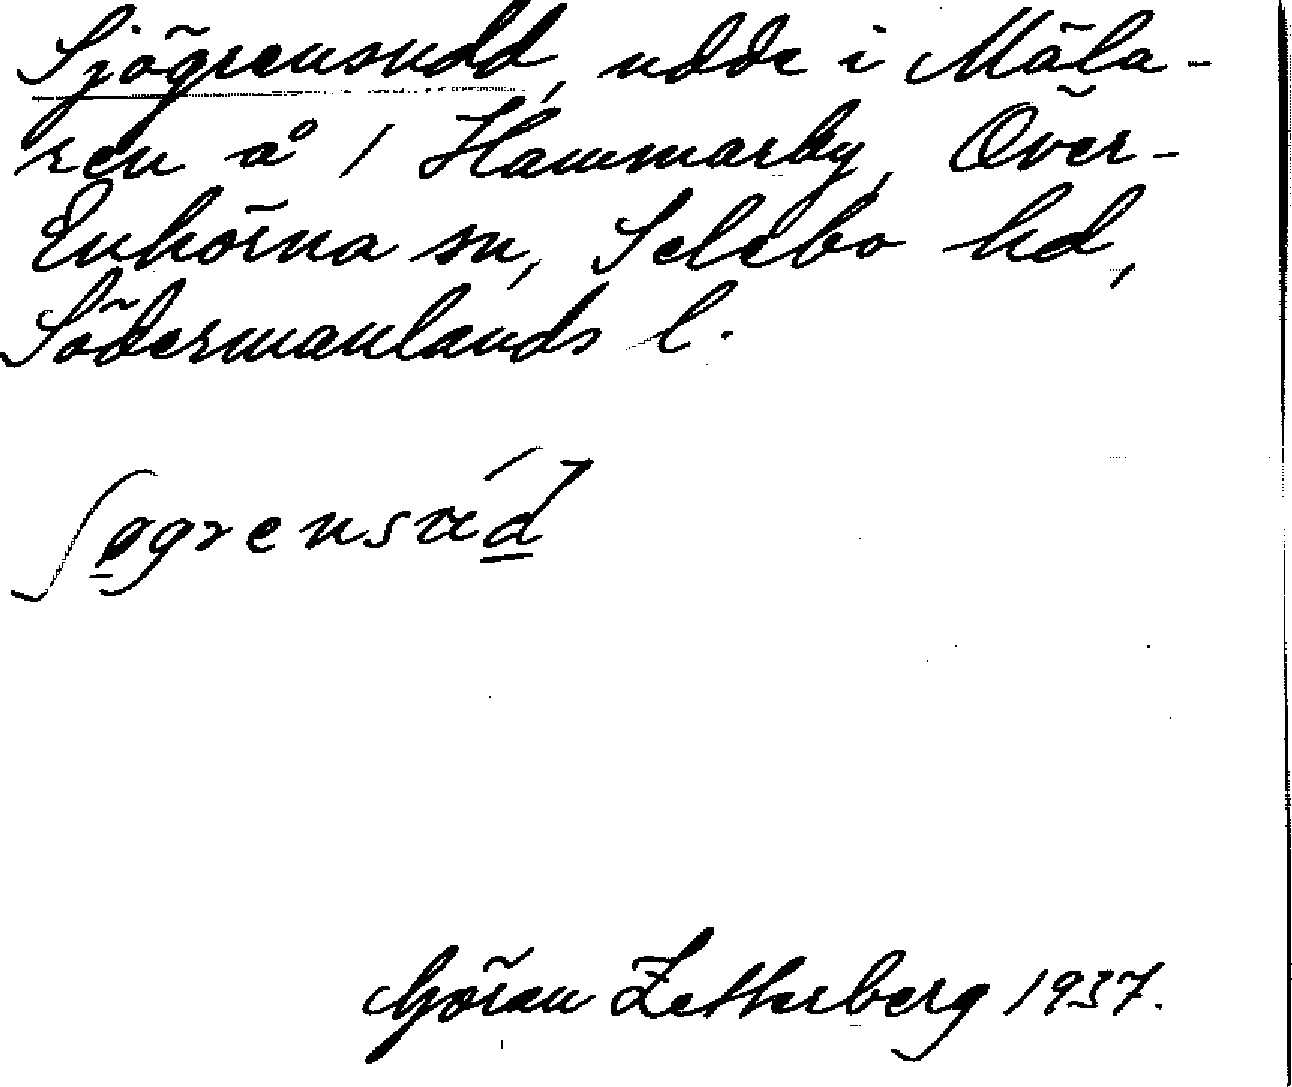 Sjögrensudd, udde i Mäla-
ren å 1 Hammarby, Över-
Enhörna sn, Selebo hd,
Södermanlands l.
Göran Zetterberg 1937.